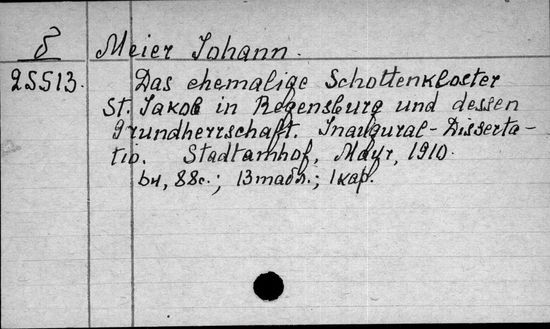 δ Meier Johann.
25513. Das ehemalige Schottenkloster
St. Jakob in Regensburg und dessen
Grundherrschaft. Inaugural-Disserta-
tio. Stadtamhof, Mayr, 1910.
bн, 88c.; 13 табл.; 1 кар.